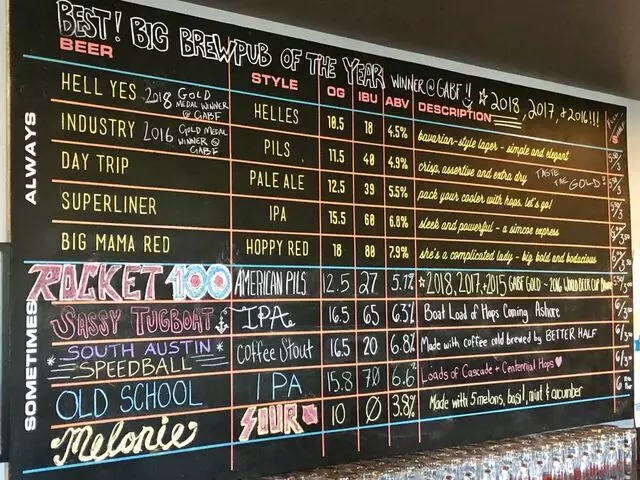 BEST! BIG BREWPUB OF THE YEAR WINNER @ GABF!! ☆ 2018, 2017, + 2016!!!
BEER STYLE OG IBU ABV DESCRIPTION
ALWAYS
HELL YES 2018 GOLD MEDAL WINNER @ GABF HELLES 10.5 18 4.5% bavarian-style lager - simple and elegant
INDUSTRY 2016 GOLD MEDAL WINNER @ GABF PILS 11.5 40 4.9% crisp, assertive and extra dry TASTE THE GOLD!!
DAY TRIP PALE ALE 12.5 39 5.5% pack your cooler with hops, let's go!
SUPERLINER IPA 15.5 60 6.8% sleek and powerful - a simcoe express
BIG MAMA RED HOPPY RED 18 80 7.9% she's a complicated lady - big bold and bodacious
SOMETIMES
ROCKET 100 AMERICAN PILS 12.5 27 5.1% ☆ 2018, 2017, + 2015 GABF GOLD - 2016 WORLD BEER CUP
SASSY TUGBOAT IPA 16.5 65 6.3% Boat Load of Hops Coming Ashore 6/3
SOUTH AUSTIN SPEEDBALL Coffee Stout 16.5 20 6.8% Made with coffee cold brewed by BETTER HALF
OLD SCHOOL IPA 15.8 70 6.6% Loads of Cascade + Centennial Hops ♥
Melonie SOUR 10 Ø 3.8% Made with 5 melons, basil, mint & cucumber